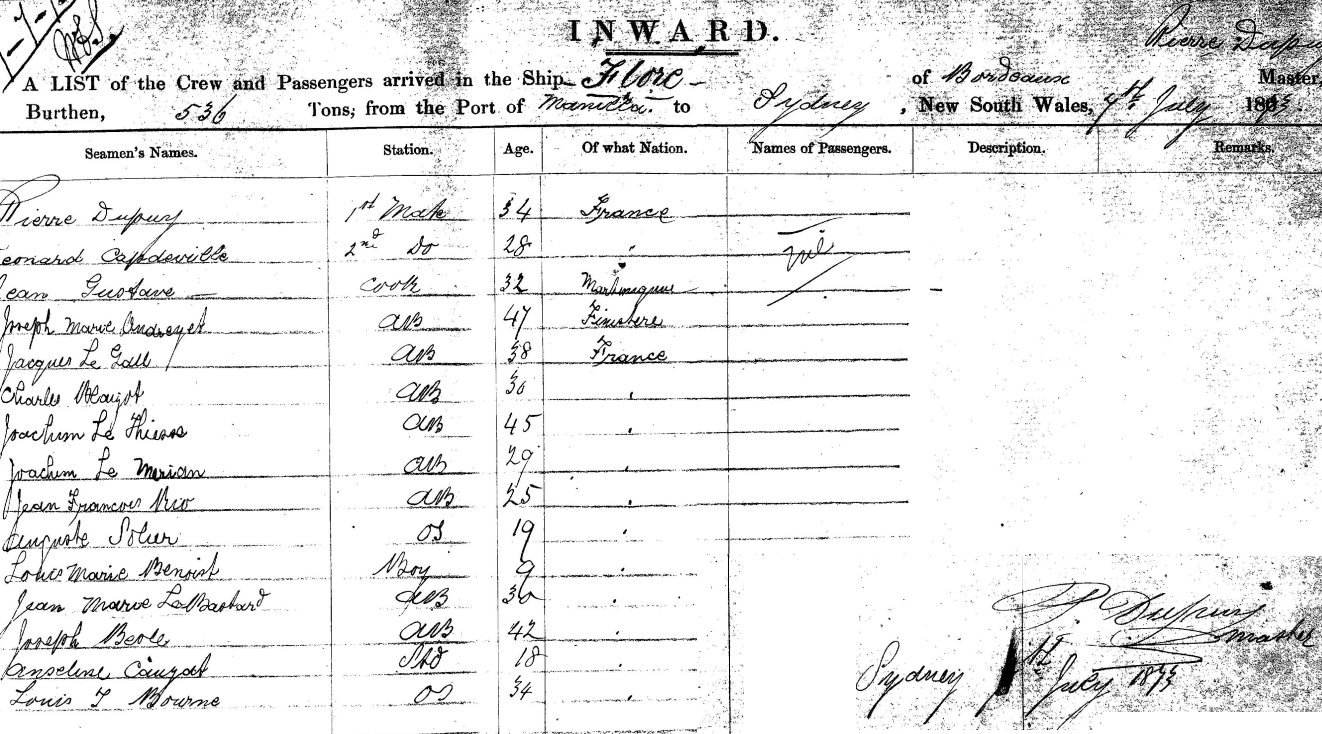 INWARD.
Pierre Dupuy
A LIST of the Crew and Passengers arrived in the Ship Flore of Bordeaux Master,
Burthen, 536 Tons, from the Port of Manilla to Sydney, New South Wales, 7th July 1873.
Seamen's Names. Station. Age. Of what Nation. Names of Passengers. Description. Remarks.
Pierre Dupuy 1st Mate 34 France
Leonard Capdeville 2nd Do 28 " Nil
Jean Gustave Cook 32 Martinique
Joseph Marie AB 47 Finistere
Jacques Le Gall AB 38 France
Charles AB 30 "
Joachim Le AB 45 "
Joachim Le Merian AB 29 "
Jean Francois Rio AB 25 "
Auguste Solier OS 19 "
Louis Marie Benoist Boy 9 "
Jean Marie LeBastard AB 30 "
Joseph AB 42 "
Anseline Std 18 "
Louis T Bourne OS 34 "
P. Dupuy
Master
Sydney July 1873